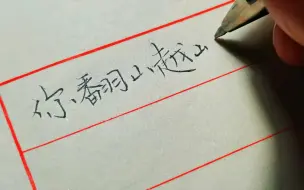 你翻山越山